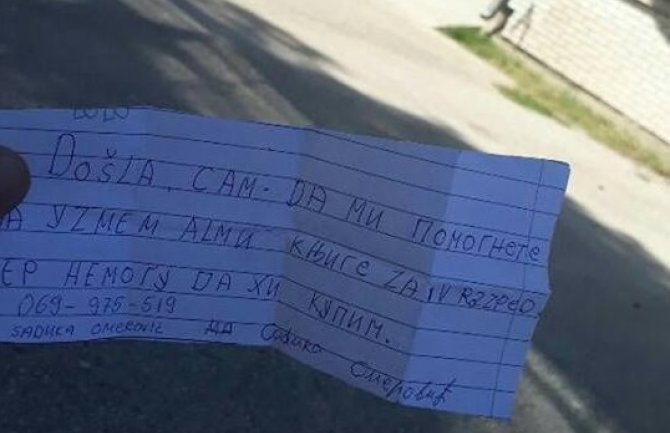 Došla САМ. DA МИ ПОМОГНЕТЕ
А УZМЕМ АLМИ КЊИГЕ ZA IV RZZPED.
ЕР НЕМОГУ DA ХИ КУПИМ.
069-975-519
SADIKA OMEROVIĆ ДА Садика Омеровић